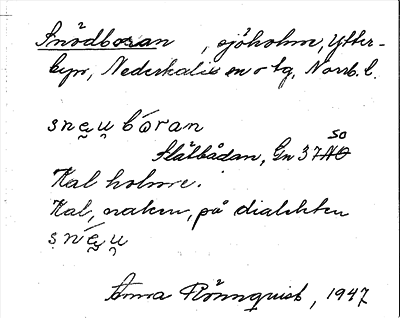 Snödboran, sjöholme, Ytter-
byn, Nederkalix sn o tg, Norrb. l.
sne̬u̬bóran
Slåtbådan, Gn 37 SO
Kal holme.
Kal, naken, på dialekten
ṣńe̬u̬
Anna Rönnquist, 1947